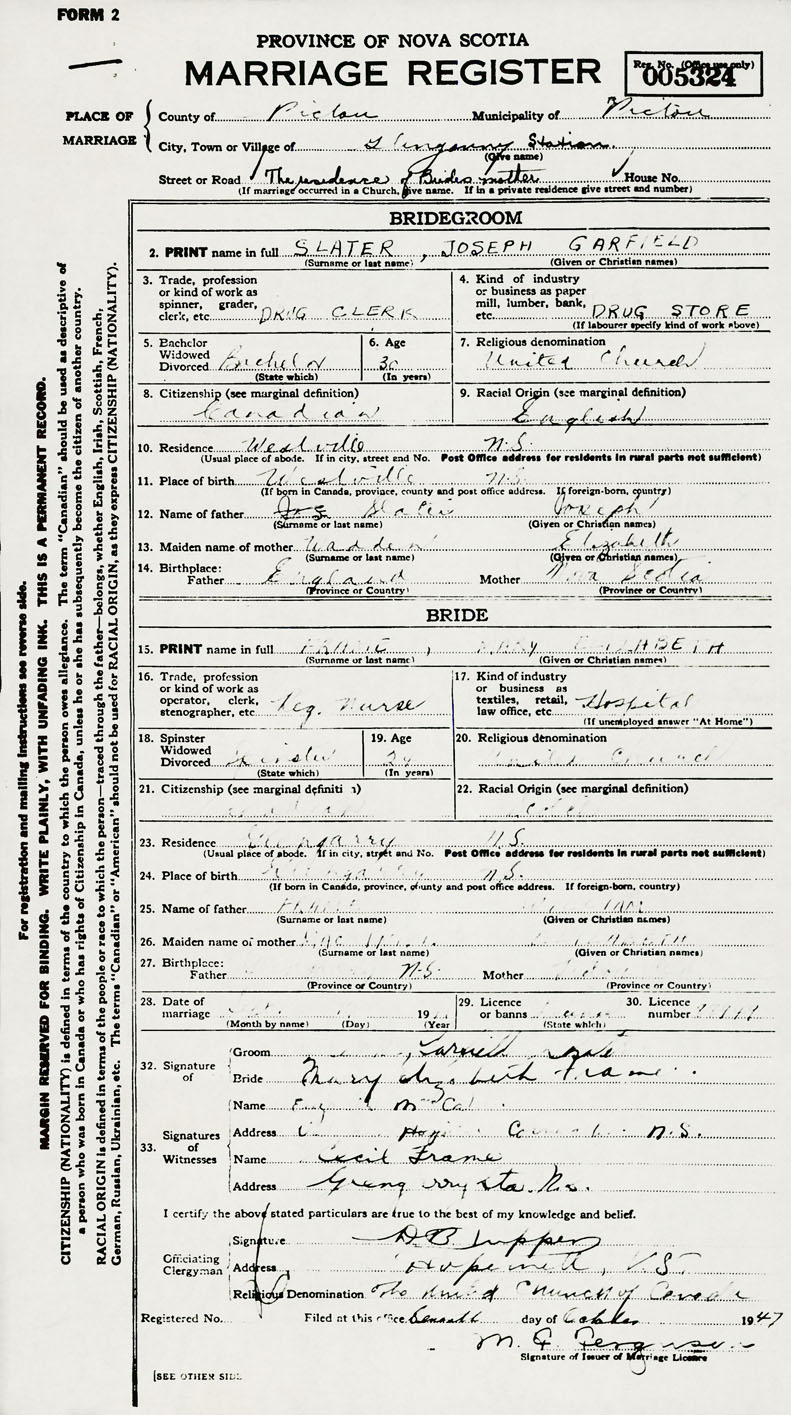 FORM 2
PROVINCE OF NOVA SCOTIA
MARRIAGE REGISTER
Reg. No. (Office use only)
005324
PLACE OF MARRIAGE
County of Pictou Municipality of Pictou
City, Town or Village of Station.
(Give name)
Street or Road The residence of Brides mother House No.
(If marriage occurred in a Church, give name. If in a private residence give street and number)
BRIDEGROOM
2. PRINT name in full SLATER, JOSEPH GARFIELD
(Surname or last name) (Given or Christian names)
3. Trade, profession or kind of work as spinner, grader, clerk, etc. DRUG CLERK
4. Kind of industry or business as paper mill, lumber, bank, etc. DRUG STORE
(If labourer specify kind of work above)
5. Bachelor Widowed Divorced Bachelor
(State which)
6. Age 30
(In years)
7. Religious denomination United Church
8. Citizenship (see marginal definition) Canadian
9. Racial Origin (see marginal definition) English
10. Residence Westville N.S.
(Usual place of abode. If in city, street and No. Post Office address for residents in rural parts not sufficient)
11. Place of birth Westville N.S.
(If born in Canada, province, county and post office address. If foreign-born, country)
12. Name of father Slater Joseph
(Surname or last name) (Given or Christian names)
13. Maiden name of mother Wadden Elizabeth
(Surname or last name) (Given or Christian names)
14. Birthplace:
Father England Mother Nova Scotia
(Province or Country) (Province or Country)
BRIDE
15. PRINT name in full FRAME, MARY ELIZABETH
(Surname or last name) (Given or Christian names)
16. Trade, profession or kind of work as operator, clerk, stenographer, etc. Reg. Nurse
17. Kind of industry or business as textiles, retail, law office, etc. Hospital
(If unemployed answer "At Home")
18. Spinster Widowed Divorced Spinster
(State which)
19. Age
(In years)
20. Religious denomination United Church
21. Citizenship (see marginal definition)
22. Racial Origin (see marginal definition)
23. Residence Glengarry N.S.
(Usual place of abode. If in city, street and No. Post Office address for residents in rural parts not sufficient)
24. Place of birth Glengarry N.S.
(If born in Canada, province, county and post office address. If foreign-born, country)
25. Name of father
(Surname or last name) (Given or Christian names)
26. Maiden name of mother
(Surname or last name) (Given or Christian names)
27. Birthplace:
Father N.S. Mother
(Province or Country) (Province or Country)
28. Date of marriage 19
(Month by name) (Day) (Year
29. Licence or banns
(State which)
30. Licence number
32. Signature of
Groom Garfield Slater
Bride Mary Elizabeth Frame
33. Signatures of Witnesses
Name
Address N.S.
Name Cecil Frame
Address Sta. N.S.
I certify the above stated particulars are true to the best of my knowledge and belief.
Officiating Clergyman
Signature D.B. Tupper
Address Hopewell, N.S.
Religious Denomination The United Church of Canada
Registered No. Filed at this office day of October 1947
M. F. Ferguson
Signature of Issuer of Marriage Licence
[SEE OTHER SIDE
For registration and mailing instructions see reverse side.
MARGIN RESERVED FOR BINDING. WRITE PLAINLY, WITH UNFADING INK. THIS IS A PERMANENT RECORD.
CITIZENSHIP (NATIONALITY) is defined in terms of the country to which the person owes allegiance. The term "Canadian" should be used as descriptive of
a person who was born in Canada or who has rights of Citizenship in Canada, unless he or she has subsequently become the citizen of another country.
RACIAL ORIGIN is defined in terms of the people or race to which the person—traced through the father—belongs, whether English, Irish, Scottish, French,
German, Russian, Ukrainian, etc. The terms "Canadian" or "American" should not be used for RACIAL ORIGIN, as they express CITIZENSHIP (NATIONALITY).